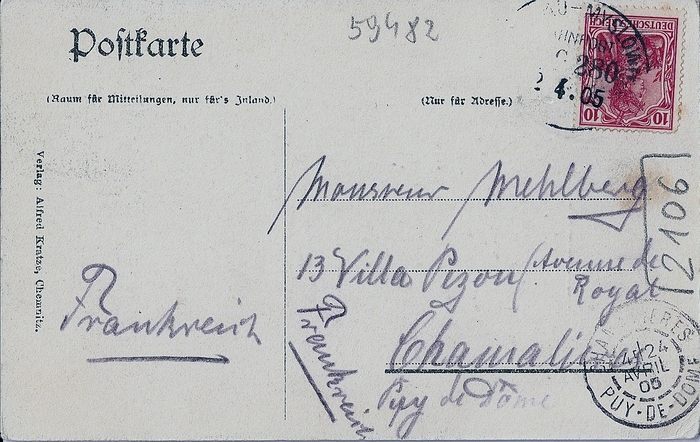 59482
Postkarte
(Raum für Mitteilungen, nur für's Inland.)
(Nur für Adresse.)
DEUTSCHES REICH
10 10
280
4.05
Verlag: Alfred Kratze, Chemnitz.
Monsieur Mehlberg
13 Villa Pezon (Avenue de Royat
Chamalières
Puy de Dôme
Frankreich
Frankreich
2106
CHAMALIERES
24
AVRIL
05
PUY-DE-DOME